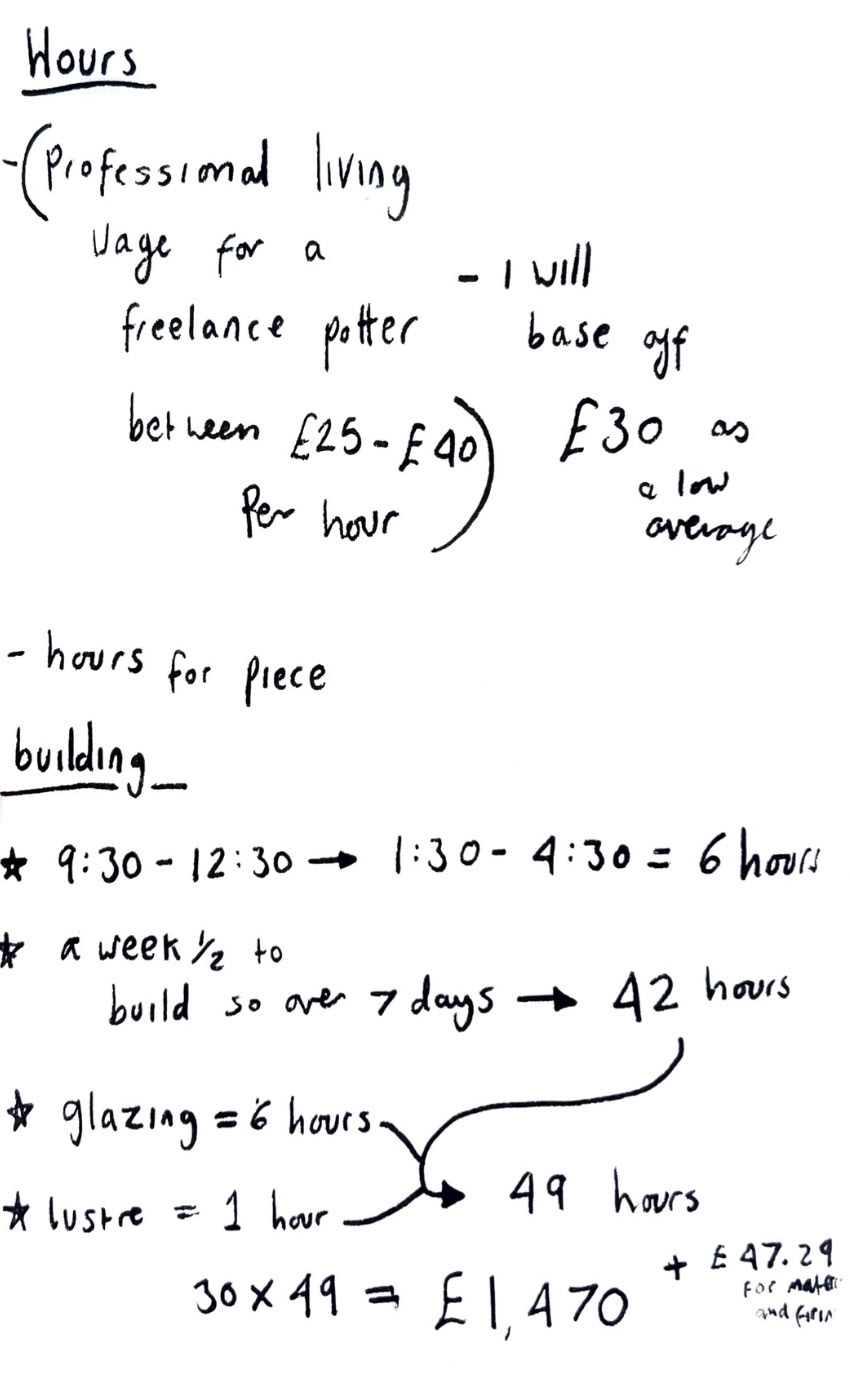 Hours
-(Professional living
wage for a
freelance potter
between £25-£40)
Per hour
- I will
base off
£30 as
a low
average
- hours for piece
building_
★ 9:30 - 12:30 → 1:30 - 4:30 = 6 hours
★ a week 1/2 to
build so over 7 days → 42 hours
★ glazing = 6 hours
★ lustre = 1 hour
49 hours
30 x 49 = £1,470
+ £47.29
For mater
and firin